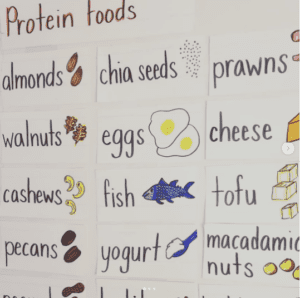 Protein foods
almonds chia seeds prawns
walnuts eggs cheese
cashews fish tofu
pecans yogurt macadamia
nuts